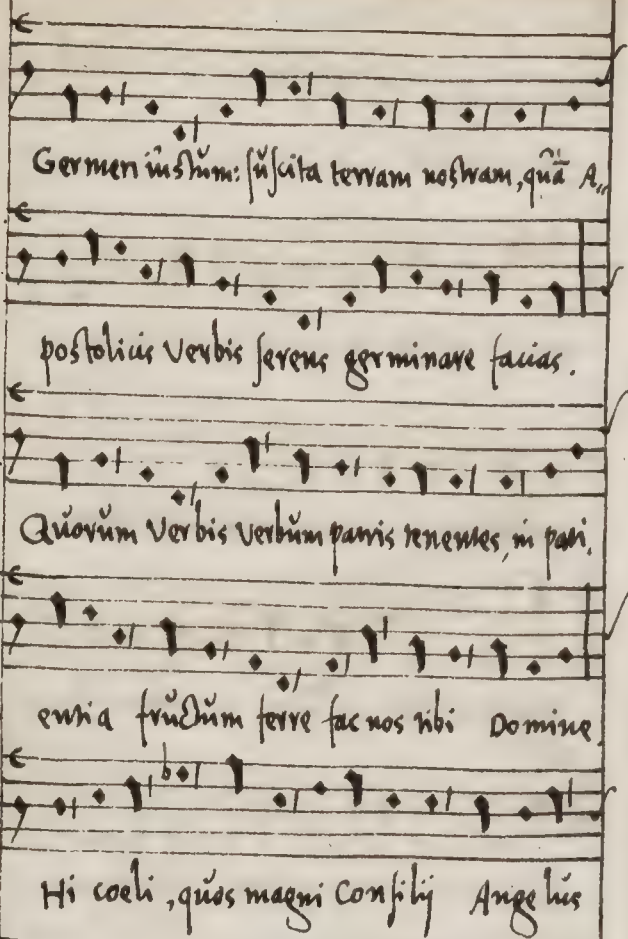 Germen iustum: suscita terram nostram, quā A„
postolicis Verbis serens germinare facias.
Quorum Verbis Verbum patris tenentes, in pati,
entia fructum terre fac nos tibi Domine
Hi coeli, quos magni Consilij Angelus